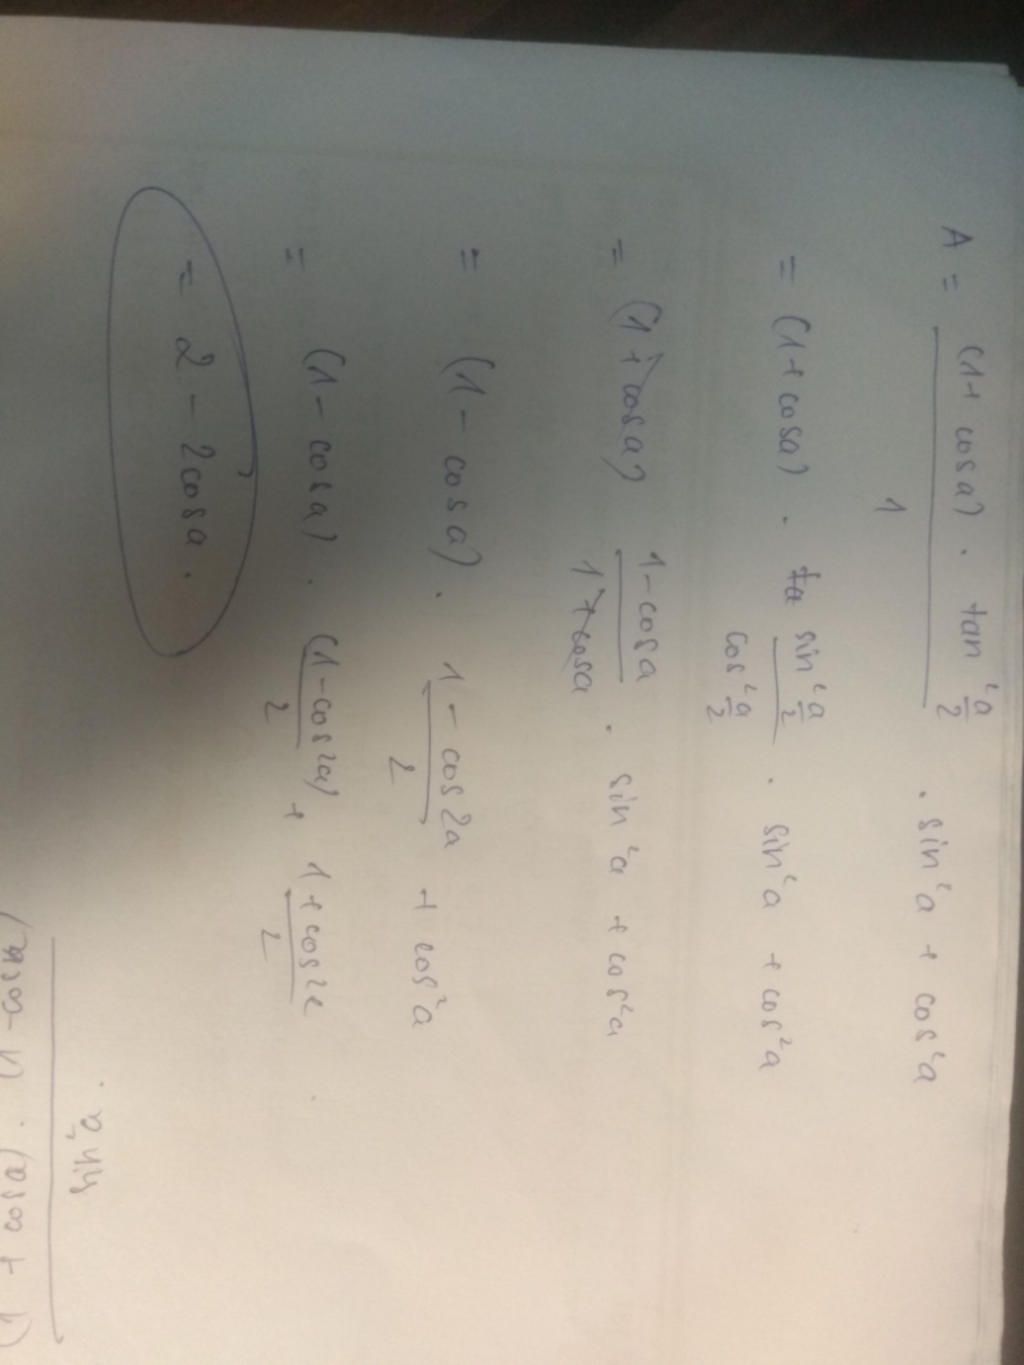 A = (1 + cosa) . tan²a/2 / 1 . sin²a + cos²a
= (1 + cosa) . ta sin²a/2 / cos²a/2 . sin²a + cos²a
= (1 + cosa) 1 - cosa / 1 + cosa . sin²a + cos²a
= (1 - cosa) . 1 - cos2a / 2 + cos²a
= (1 - cosa) . (1 - cos2a) / 2 + 1 + cos2 / 2
= 2 - 2cosa .
sin²a .
(1 + cosa) . (1 - cosa)